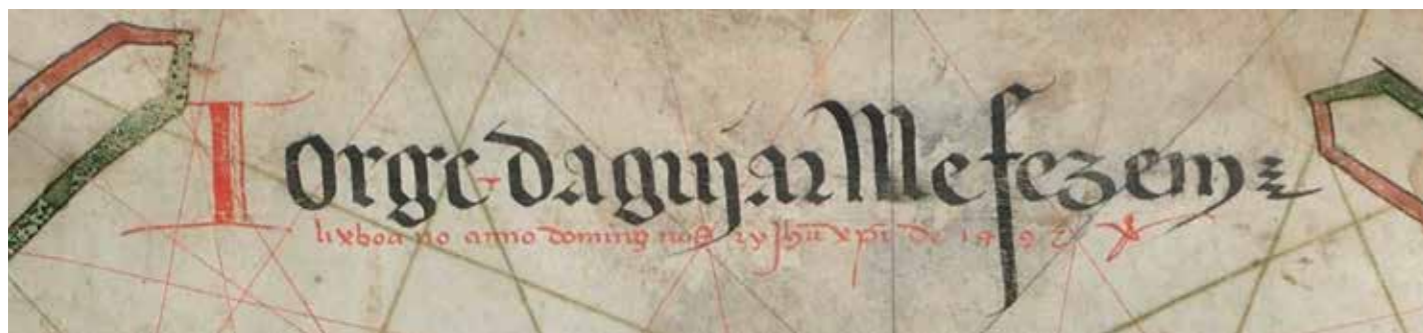 Jorge dagujar Me fez em
lixboa no anno domini nosσ Jhũ xpi de 1492